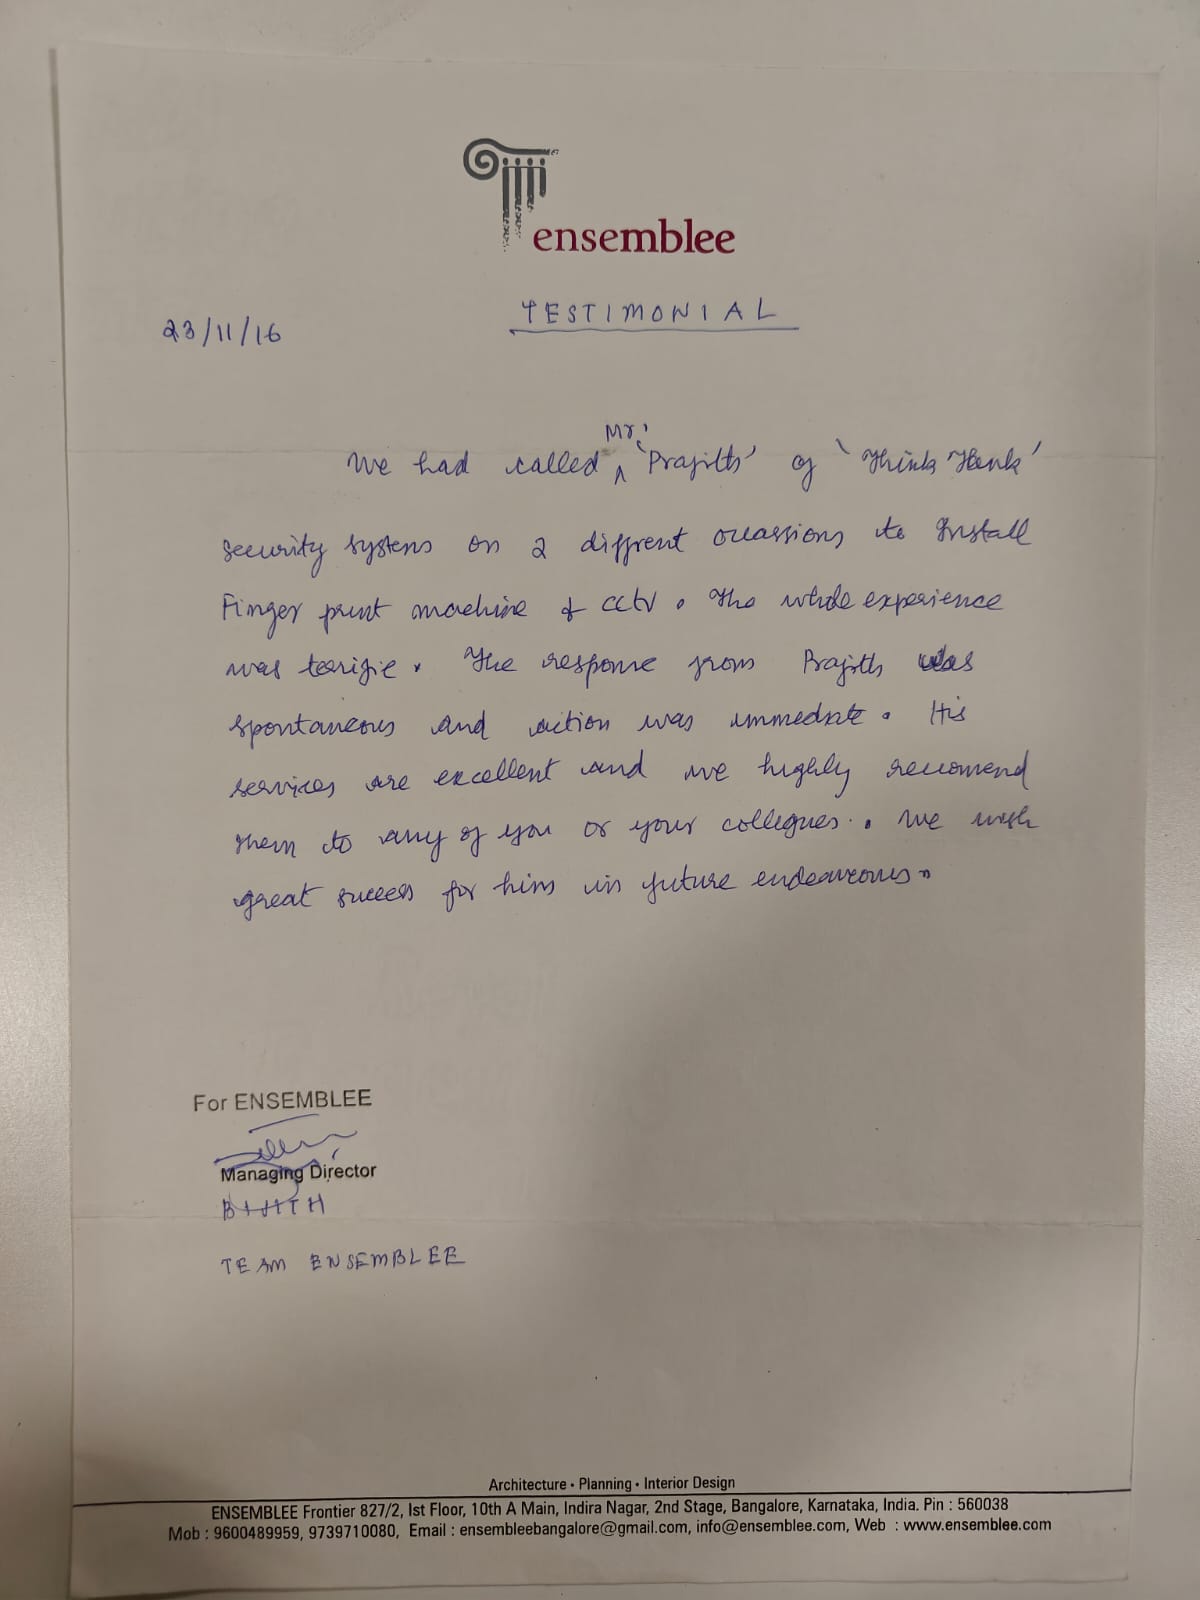 ensemblee
TESTIMONIAL
23/11/16
Mr.
We had called ‸ 'Prajith' of 'Think Hank'
Security Systems on 2 diffrent occassions to Install
Finger print machine & CCtv. The whole experience
was terrific. The response from Prajith was
spontaneous and action was immediate. His
services are excellent and we highly recomend
them to any of you or your collegues. We wish
great success for him in future endeavours.
For ENSEMBLEE
Managing Director
BIJITH
TEAM ENSEMBLEE
Architecture • Planning • Interior Design
ENSEMBLEE Frontier 827/2, Ist Floor, 10th A Main, Indira Nagar, 2nd Stage, Bangalore, Karnataka, India. Pin : 560038
Mob : 9600489959, 9739710080, Email : ensembleebangalore@gmail.com, info@ensemblee.com, Web : www.ensemblee.com